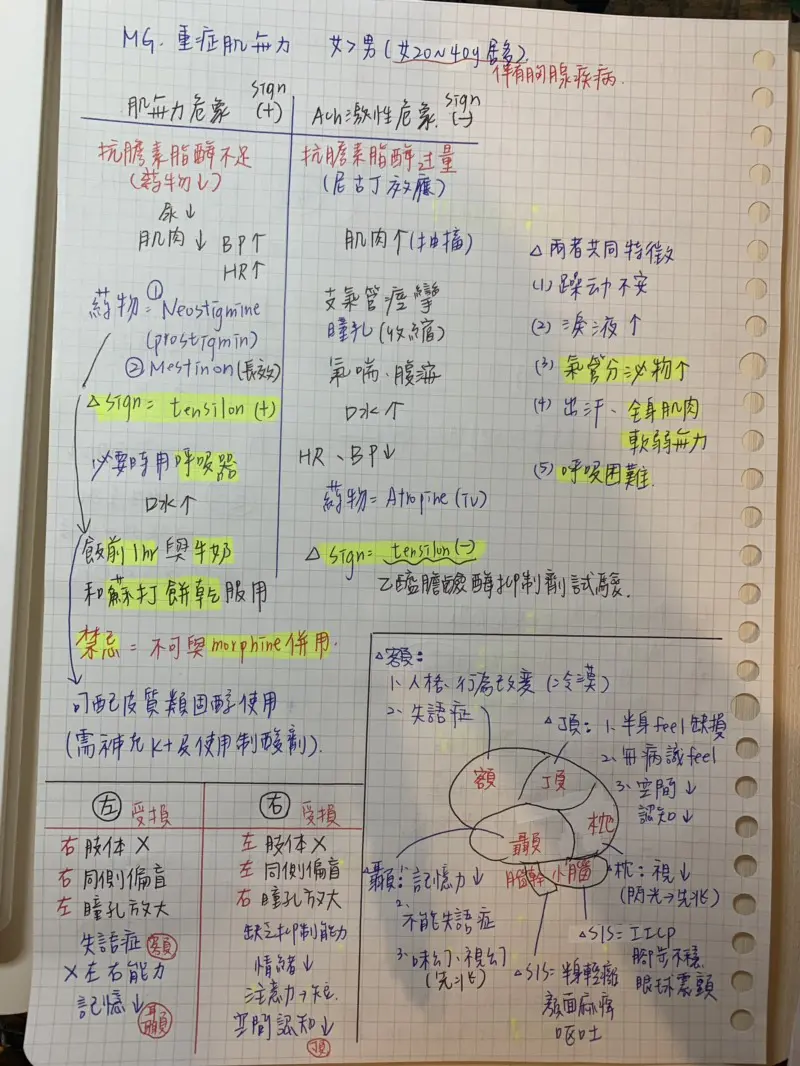 MG. 重症肌無力 女>男(女20~40y居多)
伴有胸腺疾病.
肌無力危象 sign (+)
抗膽素脂酶不足
(藥物↓)
尿↓
肌肉↓ BP↑
HR↑
藥物=①Neostigmine
(prostigmin)
②Mestinon(長效)
△sign= tensilon (+)
必要時用呼吸器
口水↑
飯前1hr與牛奶
和蘇打餅乾服用
禁忌=不可與morphine併用.
可配皮質類固醇使用
(需補充K+及使用制酸劑).
Ach激性危象. sign (-)
抗膽素脂酶过量
(尼古丁效應)
肌肉↑(抽搐)
支氣管痙攣
瞳孔(收縮)
氣喘、腹瀉
口水↑
HR、BP↓
藥物=Atropine(IV)
△sign= tensilon(-)
乙醯膽鹼酶抑制劑試驗.
△兩者共同特徵
(1)躁动不安
(2)淚液↑
(3)氣管分泌物↑
(4)出汗、全身肌肉
軟弱無力
(5)呼吸困難.
左 受損
右肢体 X
右同側偏盲
左瞳孔放大
失語症 額
X左右能力
記憶↓ 顳
右 受損
左肢体 X
左同側偏盲
右瞳孔放大
缺乏抑制能力
情緒↓
注意力→短.
空間認知↓
頂
△額:
1、人格、行為改变(冷漠)
2、失語症
△頂: 1、半身feel缺損
2、毋病識feel
3、空間↓
認知↓
額 頂
顳 枕
腦幹 小腦
△顳: 記憶力↓
2、
不能失語症
3、味幻、視幻
(先兆)
△枕: 視↓
(閃光→先兆)
△S/S=IICP
腳步不穩.
眼球震顫
△S/S=半身輕癱
顏面麻痺
嘔吐